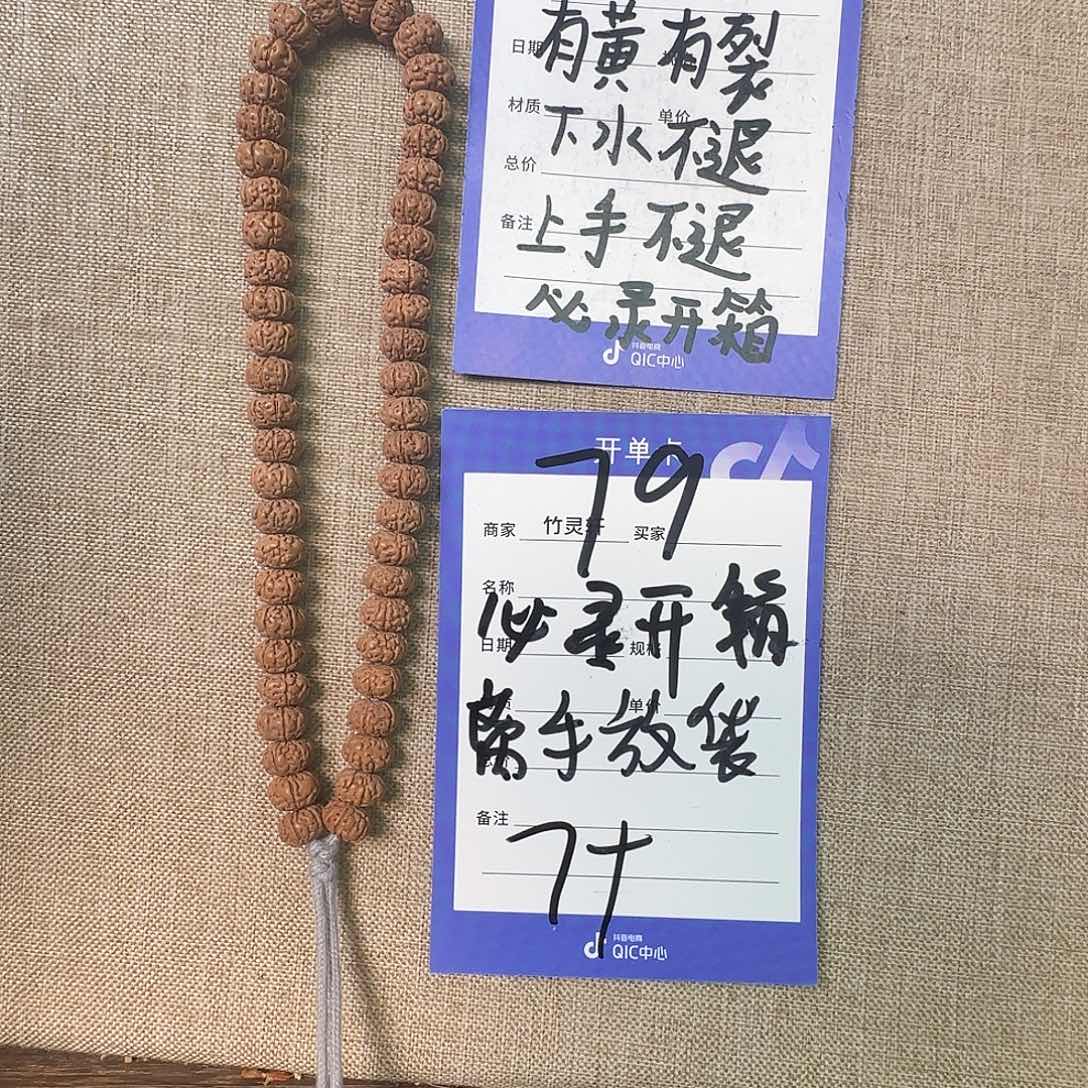 有黄有裂
日期
材质 单价
下水不退
总价
备注
上手不退
必录开箱
抖音电商
QIC中心
开单卡
79
商家 竹灵轩 买家
名称
必录开箱
日期 规格
单价
手放袋
备注
7十
抖音电商
QIC中心